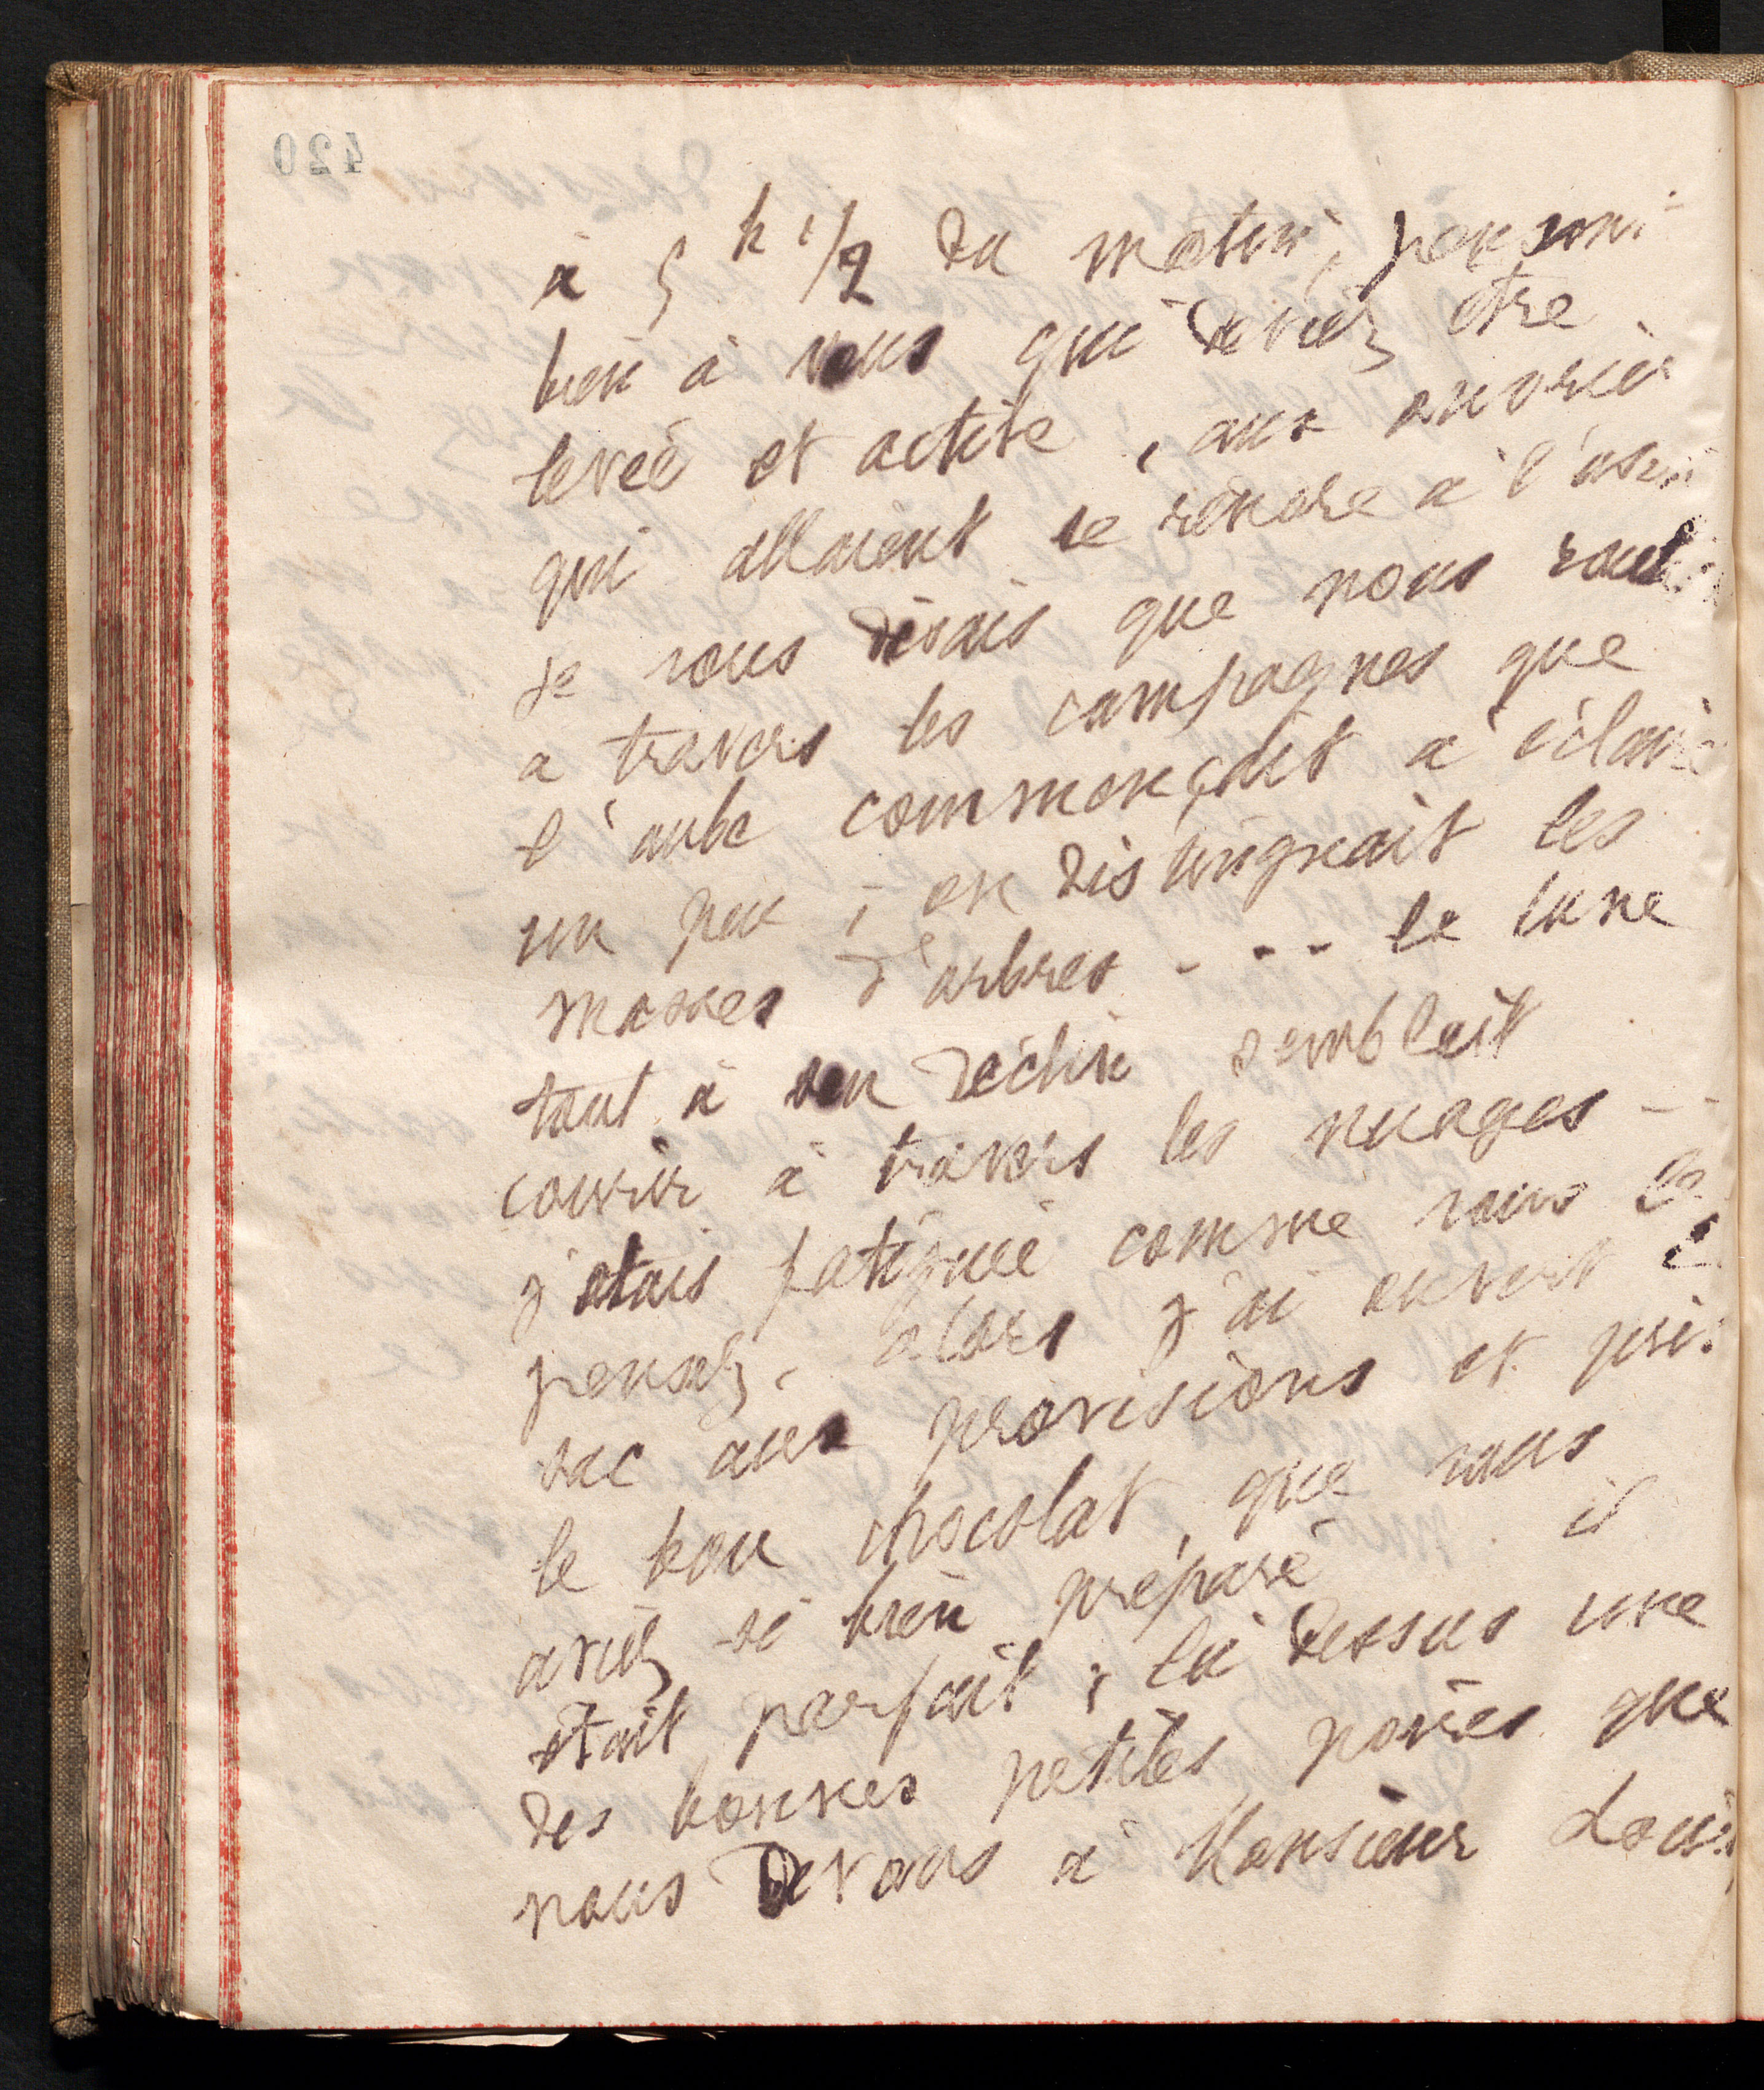 420
à 5 h 1/2 du matin, pensant
bien à vous qui deviez être
levée et active, aux ouvriers
qui allaient se rendre à l'usine
je vous disais que nous roulions
a travers les campagnes que
l'aube commençait à éclairer
un peu ; on distinguait les
masses d'arbres - - - la lune
tout à son déclin semblait
courir à travers les nuages - -
j'étais fatiguée comme vous le
pensez, alors j'ai ouvert le
sac aux provisions et pris
le bon chocolat que vous
aviez si bien préparé il
était parfait ; là dessus une
des bonnes petites poires que
nous devons à Monsieur Louis